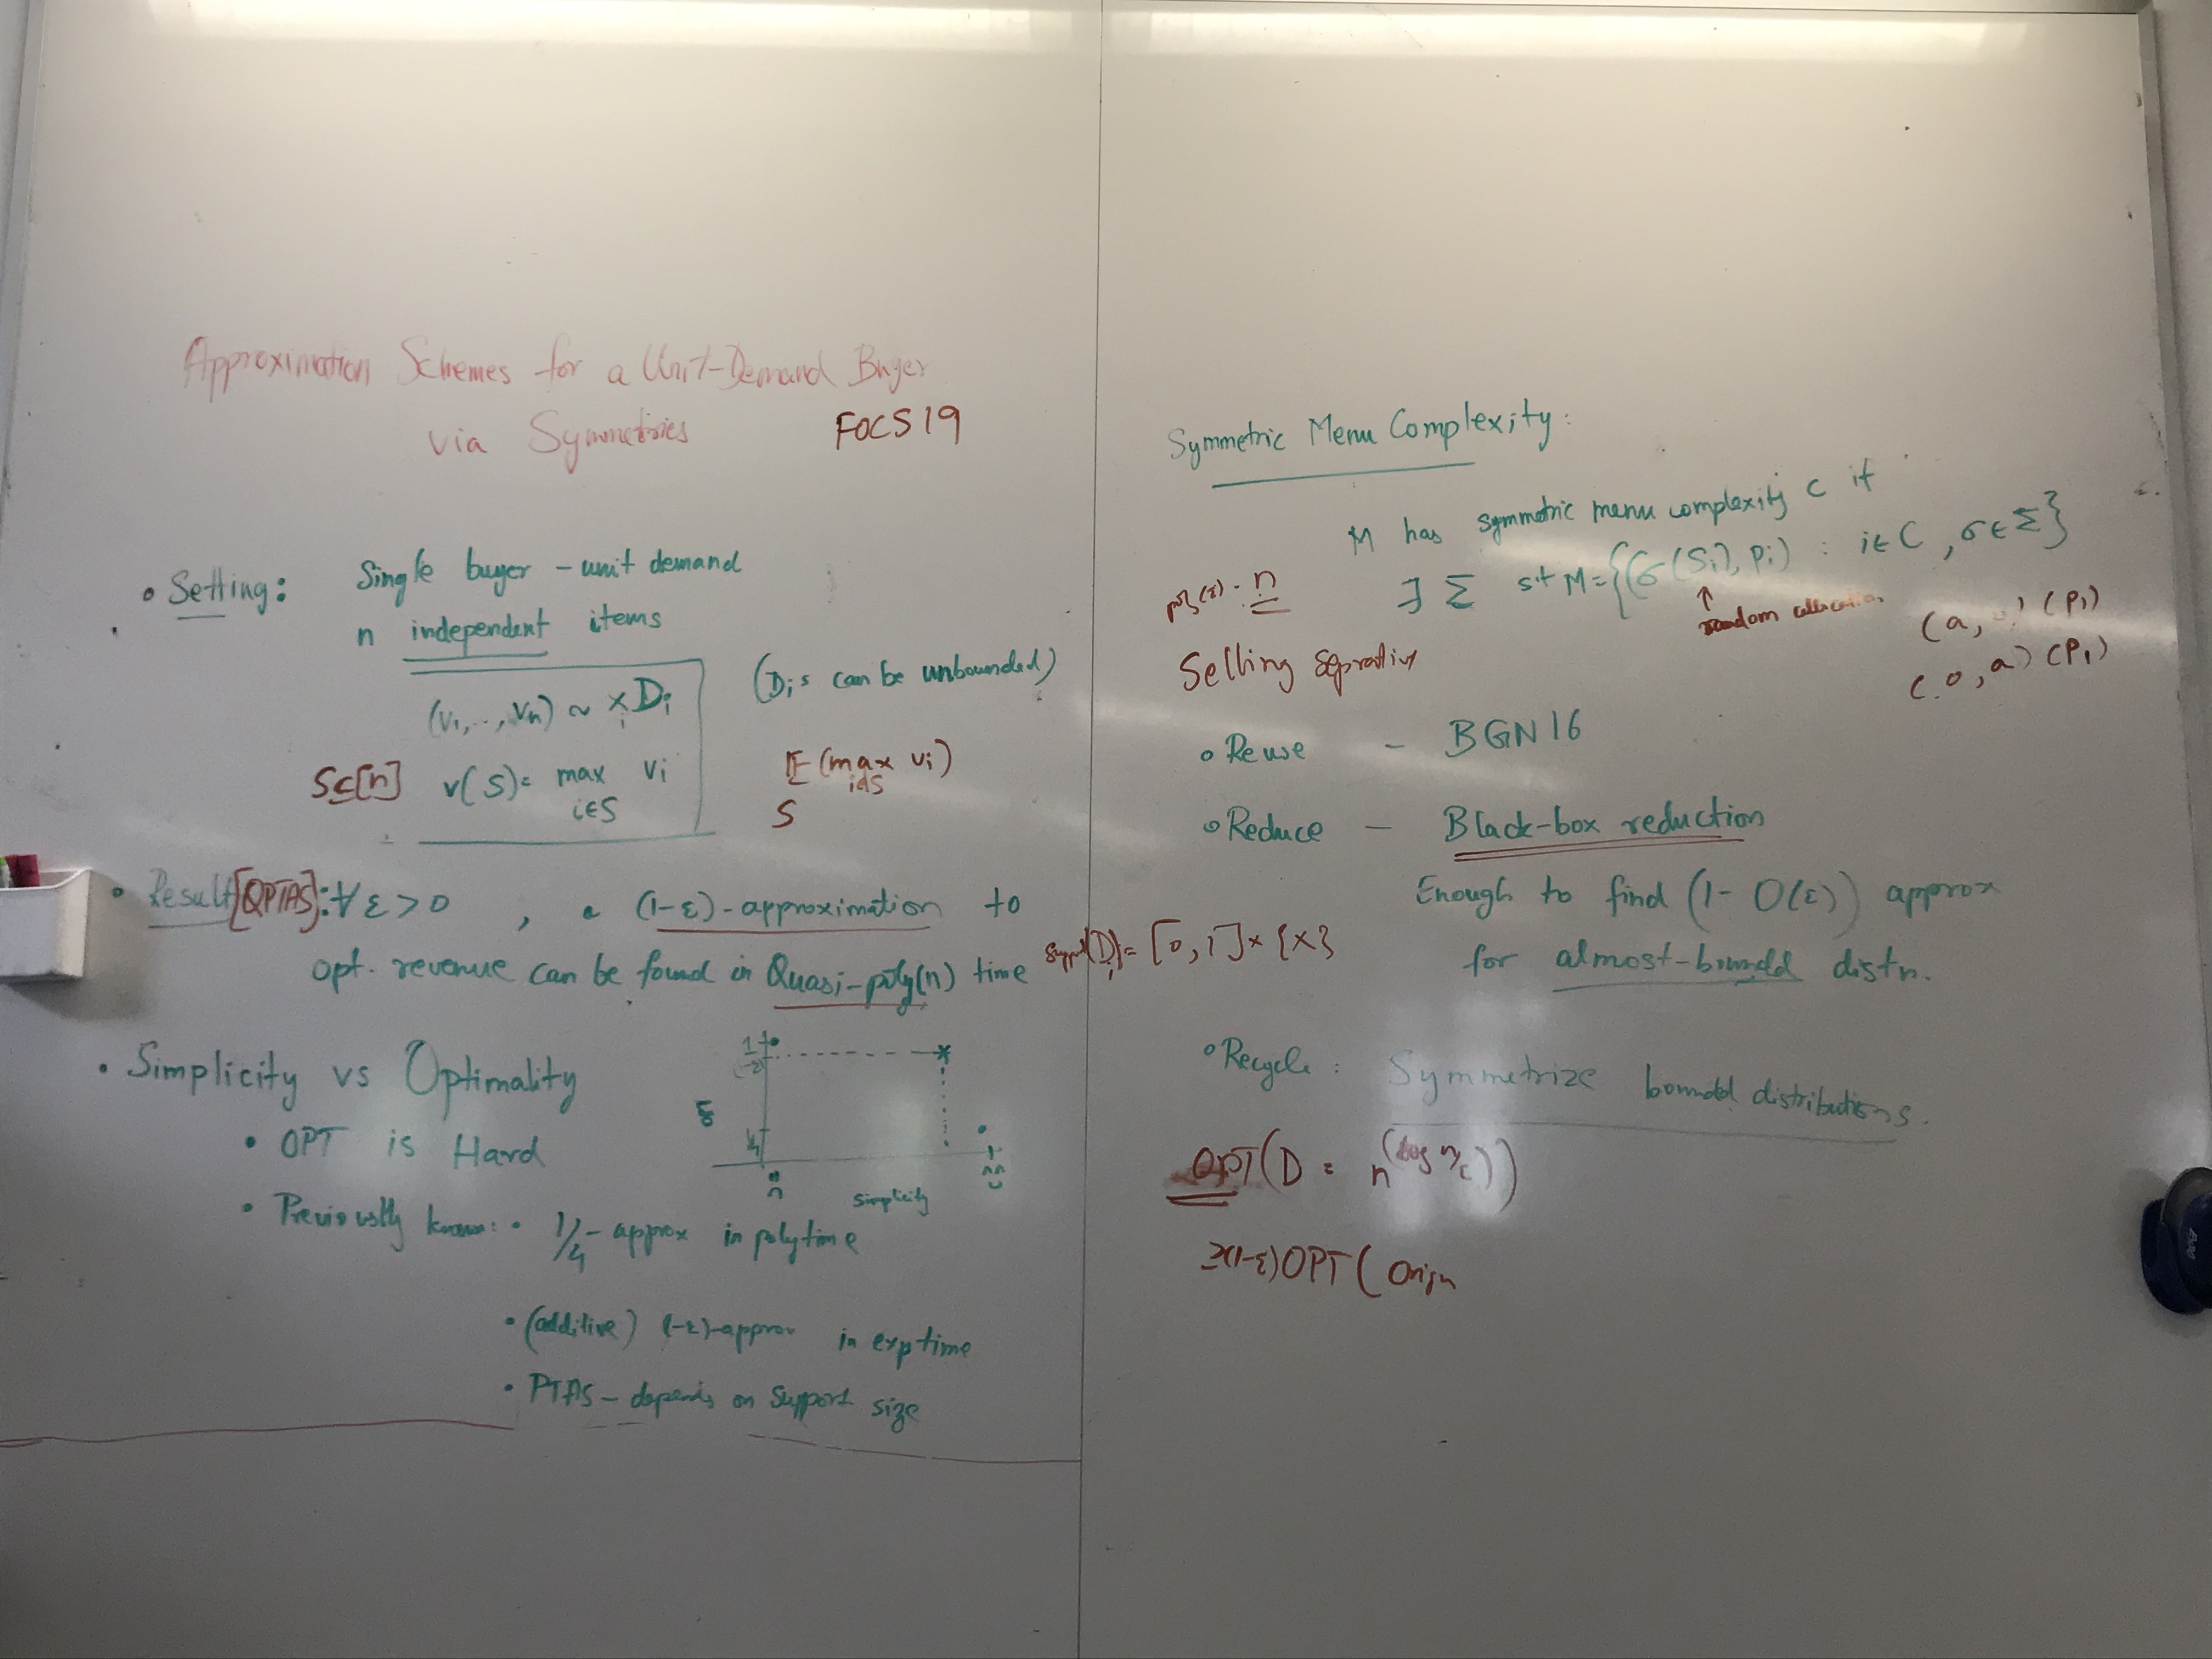 Approximation Schemes for a Unit-Demand Buyer
via Symmetries FOCS19
• Setting: Single buyer - unit demand
n independent items
(v₁, .., vₙ) ~ ×ᵢ Dᵢ (Dᵢs can be unbounded)
S⊆[n] v(S) = max_{i∈S} vᵢ
E(max vᵢ)
S
• Result [QPTAS]: ∀ ε > 0, a (1-ε)-approximation to
opt. revenue can be found in Quasi-poly(n) time
• Simplicity vs Optimality
• OPT is Hard
• Previously known: • 1/4 - approx in polytime
• (additive) (1-ε)-approx in exptime
• PTAS - depends on support size
1
1/4
n
simplicity
Symmetric Menu Complexity:
M has symmetric menu complexity C if
∃ Σ s.t M = {(σ(Sᵢ), pᵢ) : i∈C, σ∈Σ}
↑
random allocation
n
(a, 0) (P₁)
(0, a) (P₁)
Selling
• Reuse - BGN16
• Reduce - Black-box reduction
Enough to find (1- O(ε)) approx
for almost-bounded distn.
Supp(Dᵢ) = [0, 1] × {X}
• Recycle: Symmetrize bounded distributions.
OPT(D = n^(log n/ε))
≥(1-ε)OPT(